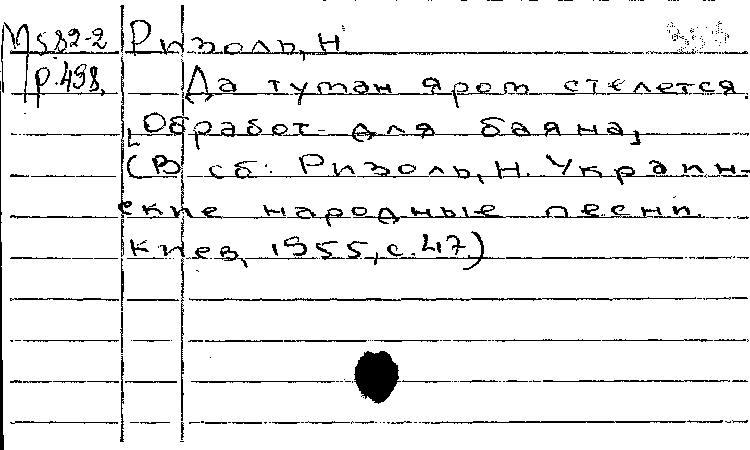 М582-2 Ризоль, Н
р.498, Да туман яром стелется.
[Обработ- для баяна]
(В сб: Ризоль, Н. Украин-
ские народные песни.
Киев, 1955, с. 47.)